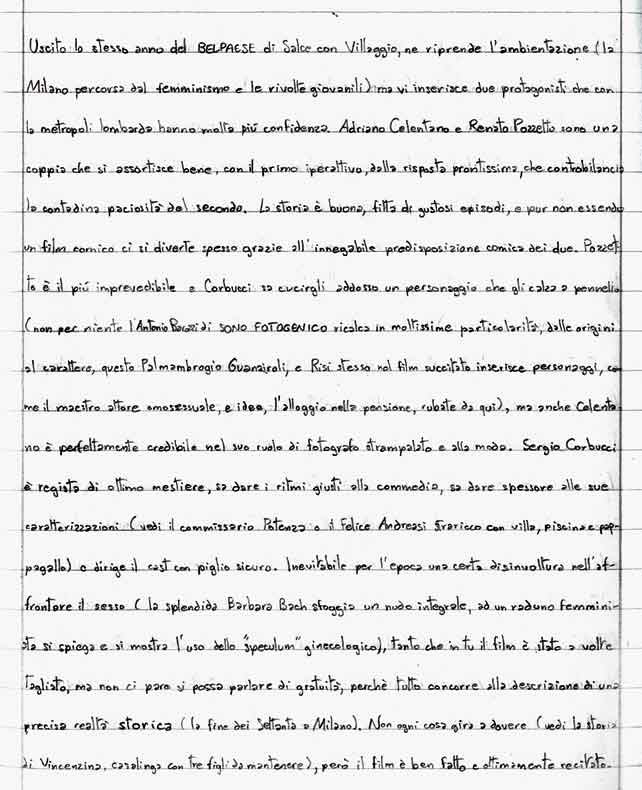 Uscito lo stesso anno del BELPAESE di Salce con Villaggio, ne riprende l'ambientazione (la
Milano percorsa dal femminismo e le rivolte giovanili) ma vi inserisce due protagonisti che con
la metropoli lombarda hanno molta più confidenza. Adriano Celentano e Renato Pozzetto sono una
coppia che si assortisce bene, con il primo iperattivo, dalla risposta prontissima, che controbilancia
la contadina paciosità del secondo. La storia è buona, fitta di gustosi episodi, e pur non essendo
un film comico ci si diverte spesso grazie all'innegabile predisposizione comica dei due. Pozzet-
to è il più imprevedibile e Corbucci sa cucirgli addosso un personaggio che gli calza a pennello
(non per niente l'Antonio Barozzi di SONO FOTOGENICO ricalca in moltissime particolarità, dalle origini
al carattere, questo Palmambrogio Guanziroli, e Risi stesso nel film succitato inserisce personaggi, co
me il maestro attore omosessuale, e idee, l'alloggio nella pensione, rubate da qui), ma anche Celenta
no è perfettamente credibile nel suo ruolo di fotografo strampalato e alla moda. Sergio Corbucci
è regista di ottimo mestiere, sa dare i ritmi giusti alla commedia, sa dare spessore alle sue
caratterizzazioni (vedi il commissario Potenza o il Felice Andreasi straricco con villa, piscina e pap-
pagallo) e dirige il cast con piglio sicuro. Inevitabile per l'epoca una certa disinvoltura nell'af-
frontare il sesso (la splendida Barbara Bach sfoggia un nudo integrale, ad un raduno femmini-
sta si spiega e si mostra l'uso dello "speculum" ginecologico), tanto che in tv il film è stato a volte
tagliato, ma non ci pare si possa parlare di gratuità, perchè tutto concorre alla descrizione di una
precisa realtà storica (la fine dei Settanta a Milano). Non ogni cosa gira a dovere (vedi la storia
di Vincenzina, casalinga con tre figli da mantenere), però il film è ben fatto e ottimamente recitato.